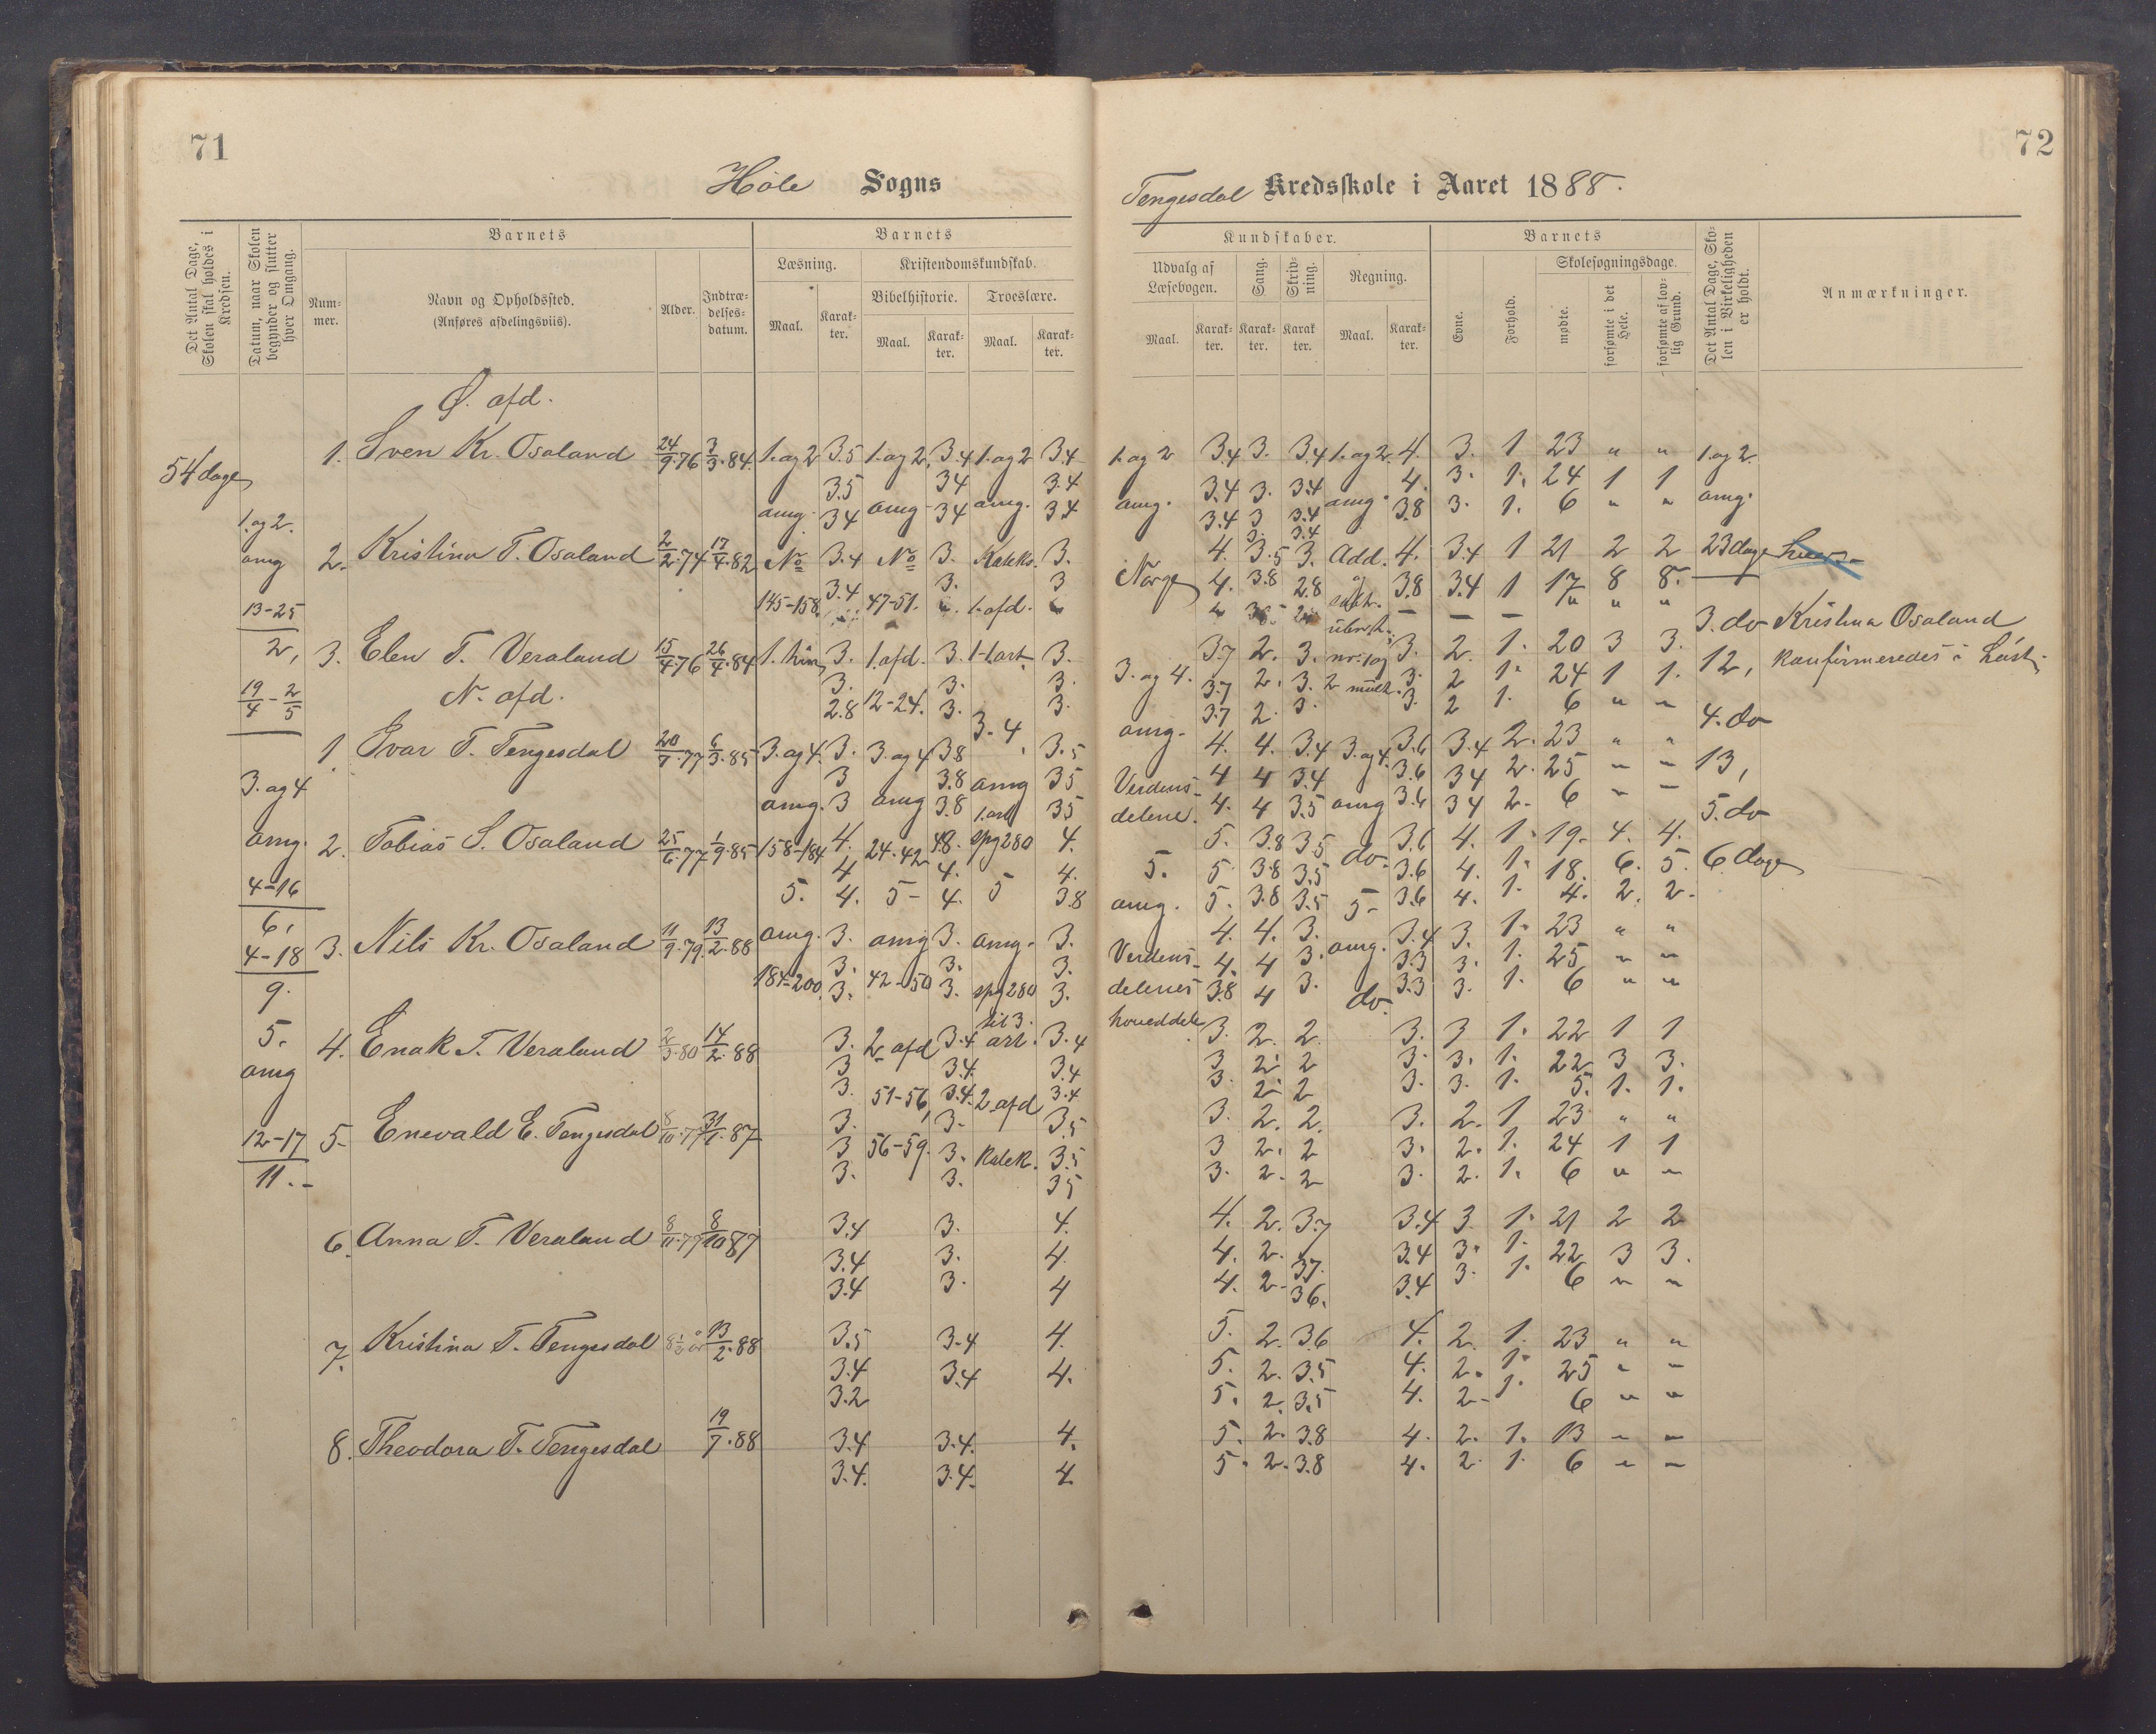 71
Höle Sogns
Det Antal Dage, Skolen skal holdes i Kredsen.
Datum, naar Skolen begynder og slutter hver Omgang.
Barnets
Num-mer.
Navn og Opholdssted.
(Anføres afdelingsviis).
Alder.
Indtræ-delses-datum.
Barnets
Læsning.
Kristendomskundskab.
Bibelhistorie.
Troeslære.
Maal.
Karak-ter.
Maal.
Karak-ter.
Maal.
Karak-ter.
Ø. afd.
54 dage
1. Sven Kr. Osaland 24/9.76 3/3.84. 1. og 2 3.5 1. og 2. 3.4 1. og 2 3.4
3.5 34 3.4
1. og 2. omg. 34 omg 34 omg. 34
omg 2. Kristina T. Osaland 2/2.74 17/4.82 No 3.4 No 3. Kateks. 3.
3.4 3. 3
13-25 145-158. 47-51. 1. afd.
2, 3. Elen T. Veraland 15/4.76 26/4.84 3. 1. afd. 3. 3.
3. 3. 3.
19/4 - 2/5 N. afd. 2.8 12-24. 3. 3.
3. 4
1 Ivar T. Tengesdal 20/7.77 6/3.85 3. og 4. 3. 3. og 4 3.8 3.5
3. og 4 3 3.8 omg 35
omg. 3 omg 3.8 1. art 35
omg. 2. Tobias S. Osaland 25/6.77 1/9.85 158-184 4. 24-42 4.8. spg 280 4.
4 4. 4.
4-16 5. 4. 5- 4. 5 3.8
6,
4-18 3. Nils Kr. Osaland 11/9.79. 13/2.88 omg. 3. omg 3. omg. 3.
3. 3. 3.
9. 184-200. 3. 42-50 3. spg 280 3.
til 3.
5. 4. Enok T. Veraland 2/3.80 14/2.88 3. 2 afd 3.4 art. 3.4
omg 3 3.4. 3.4
3. 51-56 3.4. 2 afd 3.4
12-17 5. Enevald E. Tengesdal 8/10.77 31/1.87 3. 3. 3.5
3 56-59. 3. Katek. 3.5
11. 3. 3. 35
6. Anna T. Veraland 8/11.79 8/10 87 3.4 3. 4.
3.4 3. 4.
3.4 3. 4
7. Kristina T. Tengesdal 8½ år 13/2.88 3.5 3.4 4.
3.4 3.4 4.
3.2
8. Theodora T. Tengesdal 19/7.88 3.4 3.4. 4.
3.4. 3.4. 4
72
Tengesdal Kredsskole i Aaret 1888.
Kundskaber.
Udvalg af Læsebogen.
Sang.
Skriv-ning.
Regning.
Maal.
Karak-ter.
Karak-ter.
Karak-ter.
Maal.
Karak-ter.
Barnets
Evne.
Forhold.
Skolesøgningsdage.
mødte.
forsømte i det Hele.
forsømte af lov-lig Grund.
Det Antal Dage, Sko-len i Virkeligheden er holdt.
Anmærkninger.
1. og 2 3.4 3. 3.4 1. og 2. 4. 3. 1 23 " " 1. og 2.
3.4 3. 3.4 4. 3. 1. 24 1 1
omg. 3.4 3 3.4 omg. 3.8 3. 1. 6 " " omg.
3. 3.4
4. 3.5 3. Add. 4. 3.4 1 21 2 2 23 dage
Norge 4. 3.8 2.8 og 3.8 3.4 1 17 8 8.
subtr. — — — " " "
3. do Kristina Osaland
3.7 2. 3. 3. 2. 1. 20 3 3.
3. og 4. 3.7 2. 3. 2 3. 2 1. 24 1 1. 12, konfirmeredes i
3.7 2 3. 3. 2 1. 6 " "
omg. 4. do
4. 4. 3.4 3. og 4. 3.6 3.4 2. 23 " "
Verdens- 4 4 3.4 3.6 34 2. 25 " " 13,
delene. 4. 4 3.5 omg 3.6 34 2. 6 " "
5. do
5. 3.8 3.5 3.6 4. 1. 19. 4. 4.
5. 5 3.8 3.5 do. 3.6 4. 1. 18. 6. 5. 6 dage
omg. 5. 3.8 3.5 5- 3.6 4. 1. 4. 2. 2.
4. 4. 3. omg. 3.4 3. 1. 23 " "
Verdens- 4. 4 3. 3.3 3. 1. 25 " "
delenes 3.8 4 3. do. 3.3 3. 1. 6 " "
hoveddele 3. 2. 2. 3. 3 1. 22 1 1
3 2. 2 3. 3. 1. 22 3 3.
3. 2. 2 3. 3. 1. 5. 1. 1.
3. 2. 2. 3. 2. 1 23 " "
3 2. 2 3. 2. 1. 24 1 1
3. 2. 2 3. 2. 1. 6 " "
4. 2. 3.7 3.4 3. 1. 21 2 2
4. 2. 3.7. 3.4 3. 1. 22 3 3.
4. 2. 36. 3.4 3. 1. 6 " "
5. 2. 36 4. 2. 1. 23 " "
5. 2. 3.5 4. 2. 1. 25 " "
5. 2. 3.5 4. 2. 1. 6 " "
5. 2. 3.8 4. 2. 1. 13 " "
5. 2. 3.8 4. 2. 1. 6 " "